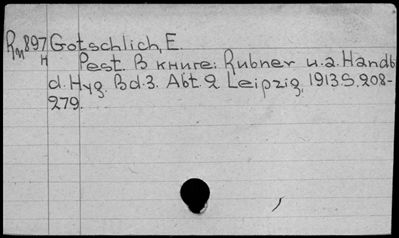 Rm897 Gotschlich, E.
H Pest. В книге: Rubner u.a. Handb
d. Hyg. Bd.3. Abt. 2 Leipzig, 1913 S. 208-
279.